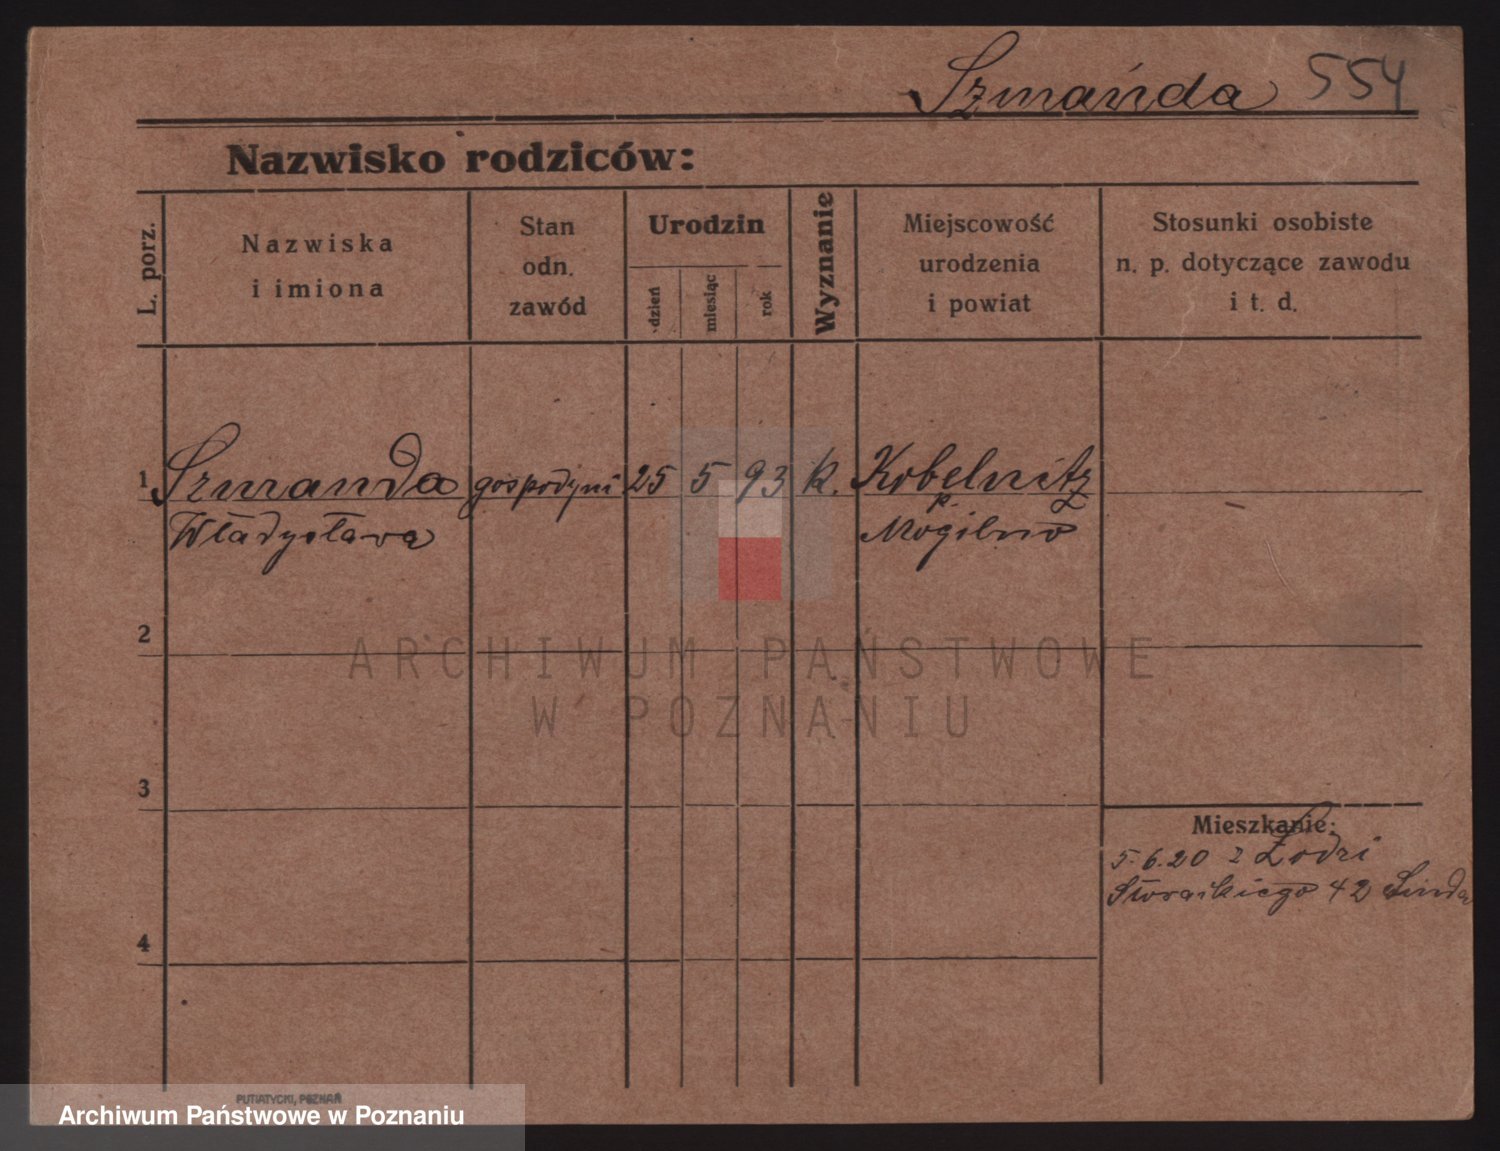 Szmańda 554
Nazwisko rodziców:
L. porz.
Nazwiska
i imiona
Stan
odn.
zawód
Urodzin
dzień
miesiąc
rok
Wyznanie
Miejscowość
urodzenia
i powiat
Stosunki osobiste
n. p. dotyczące zawodu
i t. d.
1 Szmanda gospodyni 25 5 93 k. Kobelnitz
p.
Władysława Mogilno
2
ARCHIWUM PAŃSTWOWE
W POZNANIU
3
Mieszkanie:
5.6.20 z Łodzi
42
4
PUTIATYCKI, POZNAŃ
Archiwum Państwowe w Poznaniu